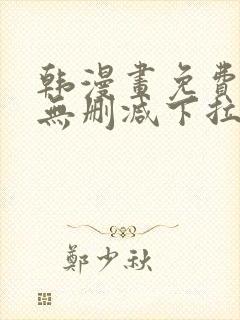 韩漫畫免費
無刪減下拉
鄭少秋